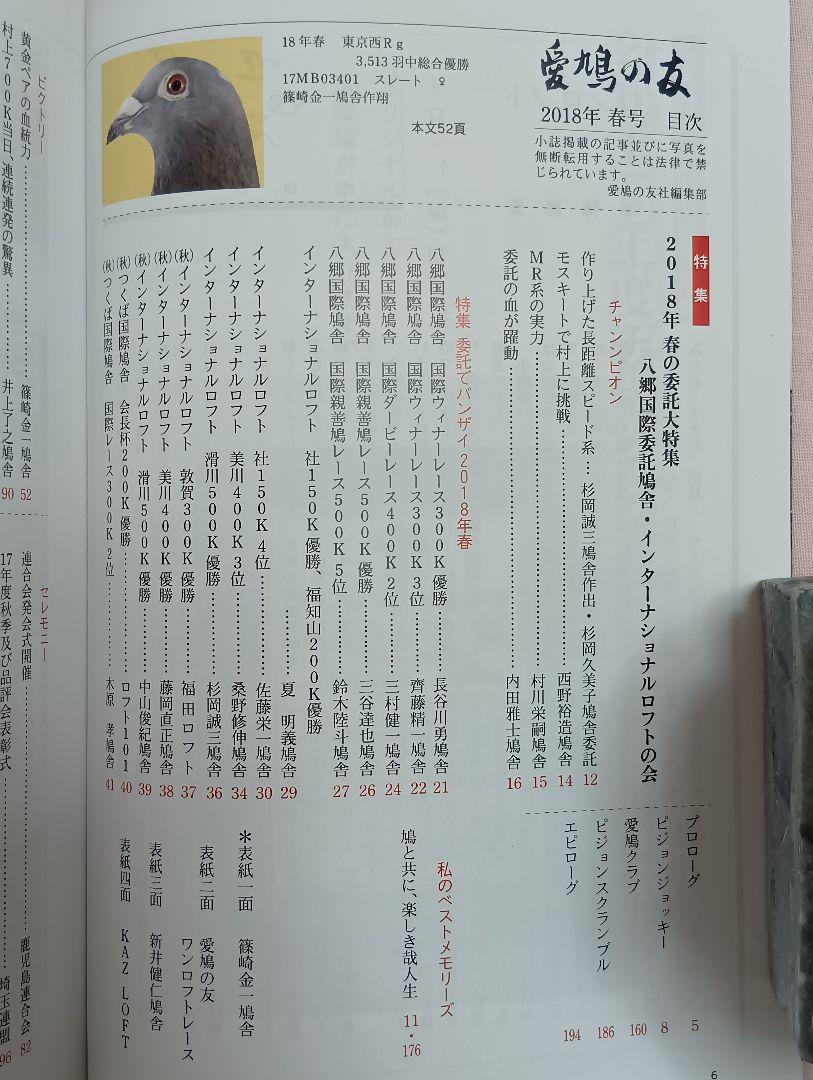 愛鳩の友
2018年 春号　目次
小誌掲載の記事並びに写真を
無断転用することは法律で禁
じられています。
愛鳩の友社編集部
18年春　東京西Rg
3,513羽中総合優勝
17MB03401　スレート　♀
篠崎金一鳩舎作翔
本文52頁
特集
2018年 春の委託大特集
八郷国際委託鳩舎・インターナショナルロフトの会
チャンピオン
作り上げた長距離スピード系… 杉岡誠三鳩舎作出・杉岡久美子鳩舎委託 12
モスキートで村上に挑戦……… 西野裕造鳩舎 14
MR系の実力……… 村川栄嗣鳩舎 15
委託の血が躍動……… 内田雅士鳩舎 16
特集 委託でバンザイ 2018年春
八郷国際鳩舎　国際ウィナーレース300K優勝……… 長谷川勇鳩舎 21
八郷国際鳩舎　国際ウィナーレース300K3位……… 齊藤精一鳩舎 22
八郷国際鳩舎　国際ダービーレース400K2位……… 三村健一鳩舎 24
八郷国際鳩舎　国際親善鳩レース500K優勝……… 三谷達也鳩舎 26
八郷国際鳩舎　国際親善鳩レース500K5位……… 鈴木陸斗鳩舎 27
インターナショナルロフト　社150K優勝、福知山200K優勝
……… 夏　明義鳩舎 29
インターナショナルロフト　社150K4位……… 佐藤栄一鳩舎 30
インターナショナルロフト　美川400K3位……… 桑野修伸鳩舎 34
インターナショナルロフト　滑川500K優勝……… 杉岡誠三鳩舎 36
(秋)インターナショナルロフト　敦賀300K優勝……… 福田ロフト 37
(秋)インターナショナルロフト　美川400K優勝……… 藤岡直正鳩舎 38
(秋)インターナショナルロフト　滑川500K優勝……… 中山俊紀鳩舎 39
(秋)つくば国際鳩舎　会長杯200K優勝……… ロフト101 40
(秋)つくば国際鳩舎　国際レース300K2位……… 木原　孝鳩舎 41
プロローグ 5
ピジョンジョッキー 8
愛鳩クラブ 160
ピジョンスクランブル 186
エピローグ 194
私のベストメモリーズ
鳩と共に、楽しき哉人生 11・176
＊表紙一面　篠崎金一鳩舎
表紙二面　愛鳩の友
ワンロフトレース
表紙三面　新井健仁鳩舎
表紙四面　KAZ LOFT
6
ビクトリー
黄金ペアの血統力……… 篠崎金一鳩舎 52
村上700K当日、連続連発の驚異……… 井上了之鳩舎 90
セレモニー
連合会発会式開催……… 鹿児島連合会 82
17年度秋季及び品評会表彰式……… 埼玉連盟 96